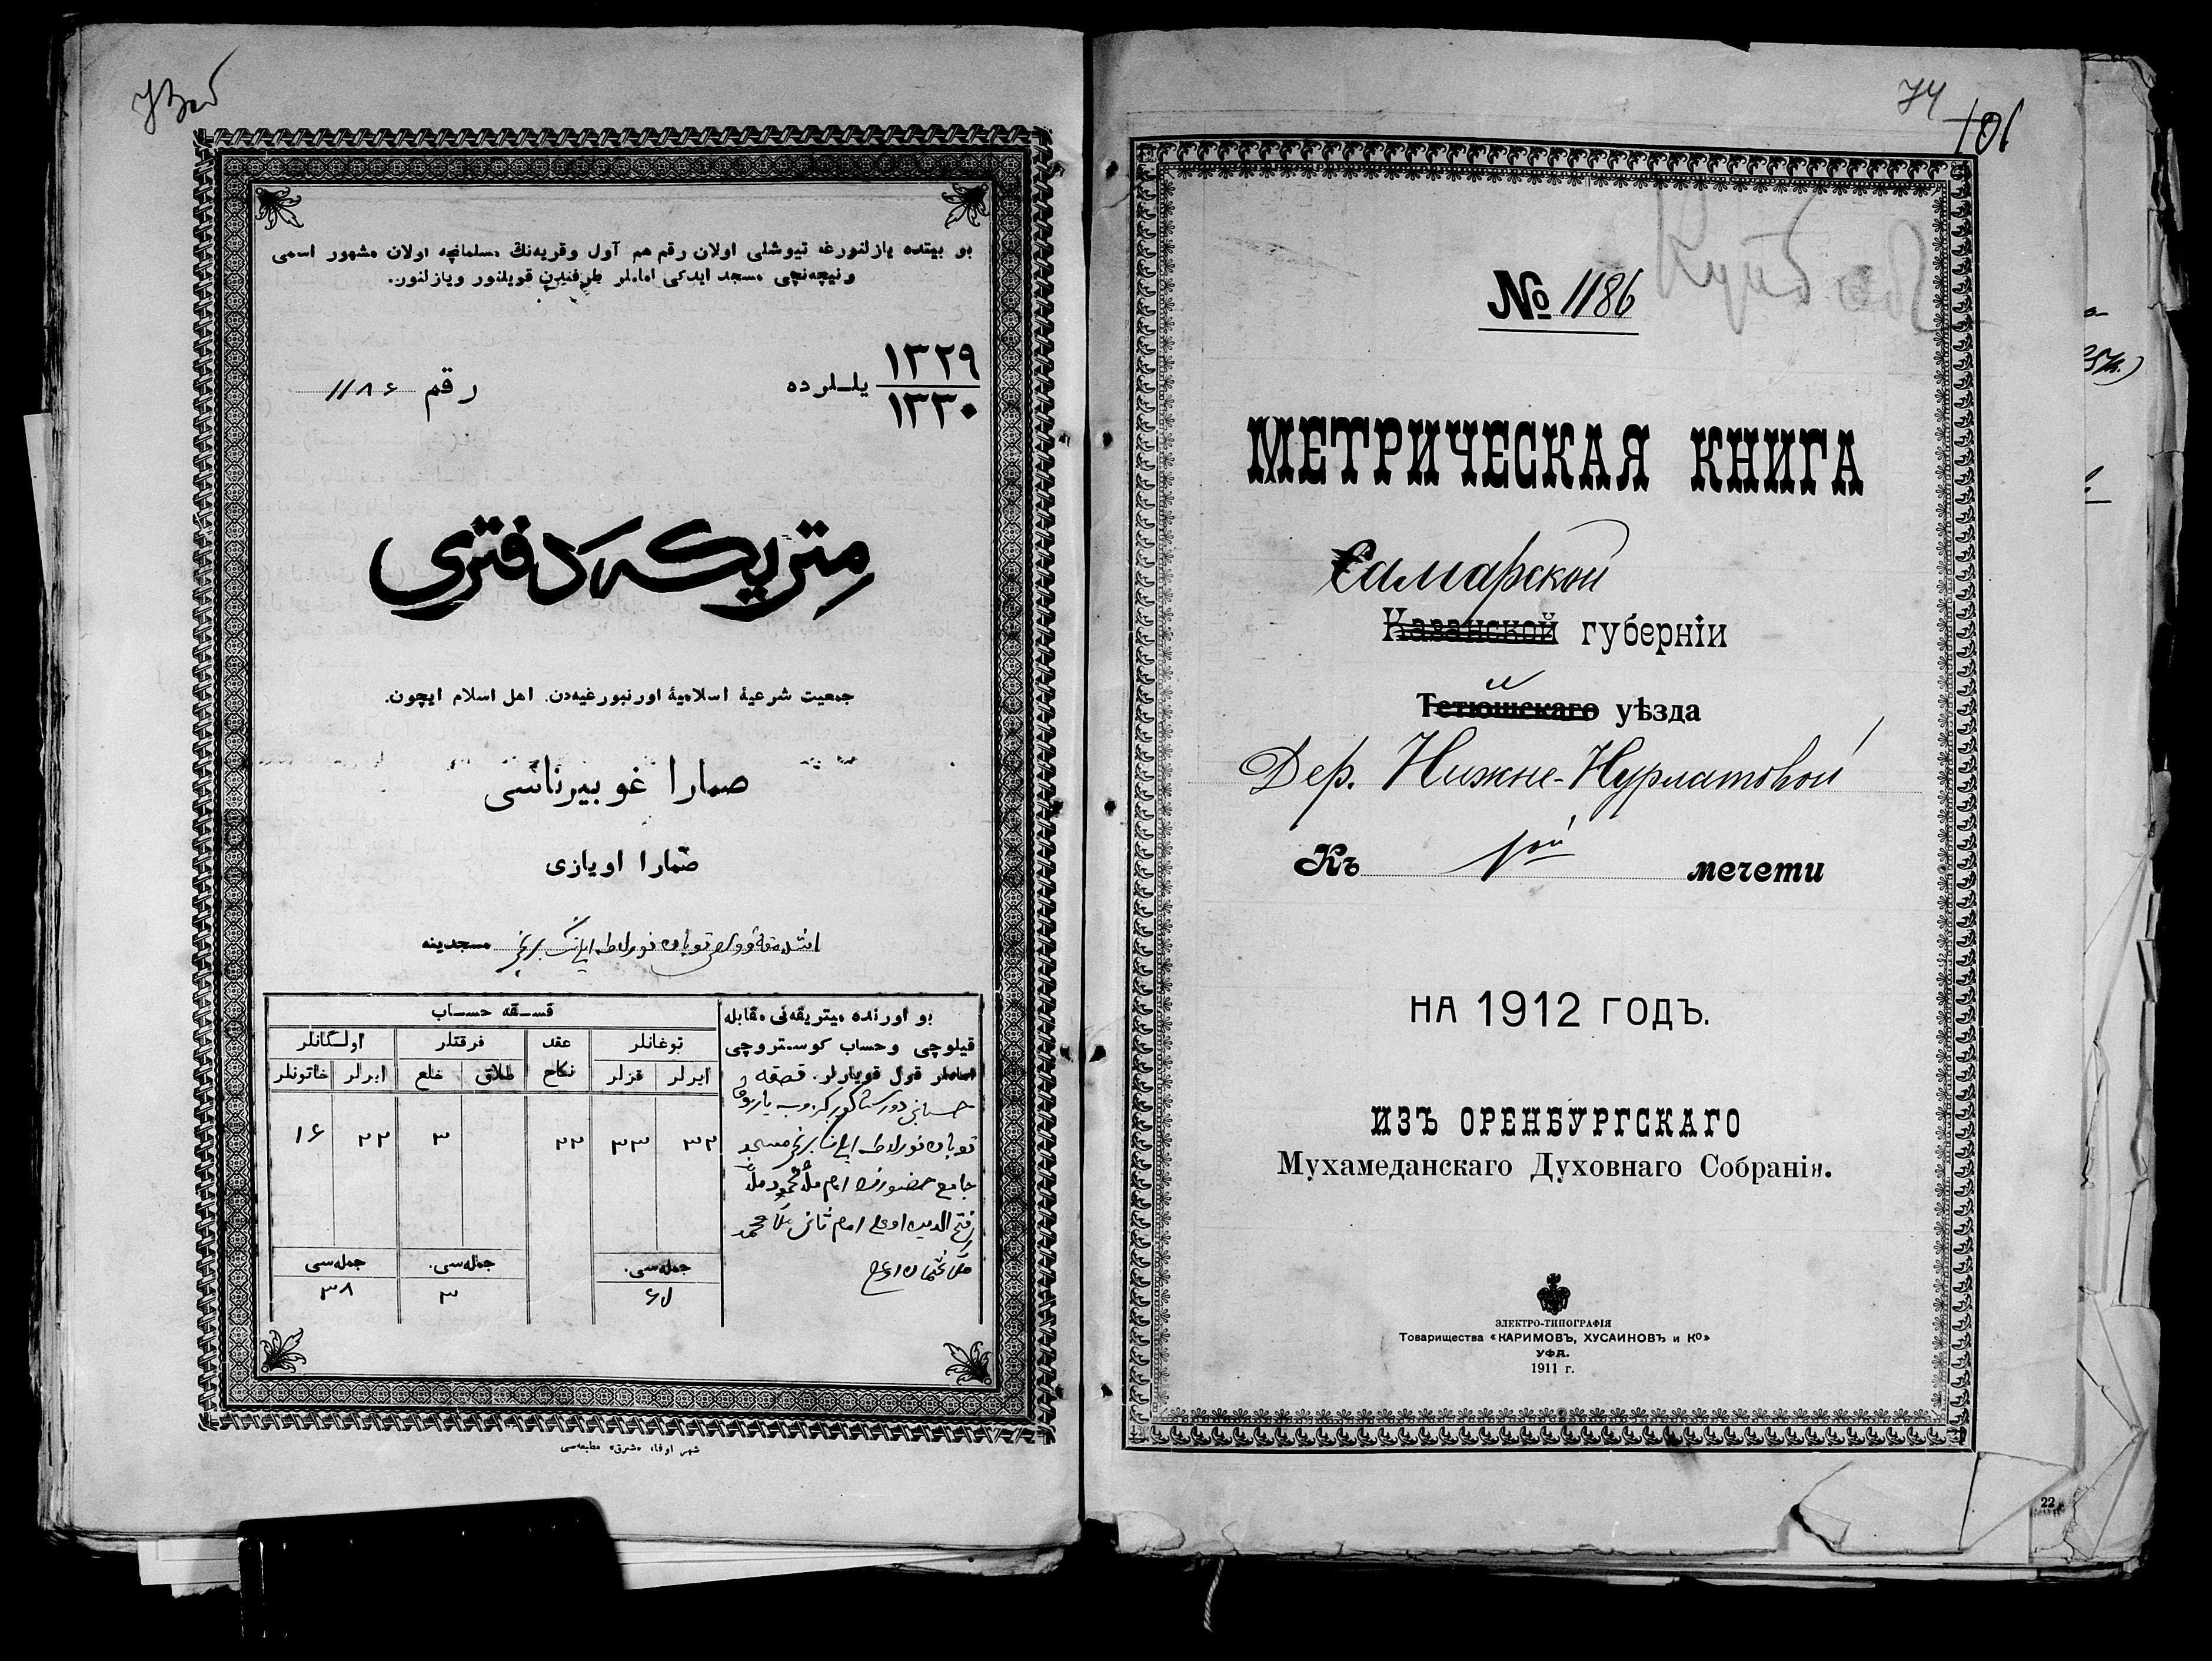 بو بيتده يازلنورغه تيوشلى اولان رقم هم آول وقريه‌نڭ مسلمانچه اولان مشهور اسمى
ونيچه‌نچى مسجد ايدكى اماملر طرفندن قويلنور ويازلنور.
١٣٢٩
١٣٣٠
يللرده
رقم ١١٨٦
متريكه دفترى
جمعيت شرعيۀ اسلاميۀ اورنبورغيه‌دن. اهل اسلام ايچون.
صمارا غوبيرناسى
صمارا اويازى
توبان نورلاط برنجى مسجدينه
بو اورنده ميتريقه‌نى مقابله
قيلوچى وحساب كوستروچى
اماملر قول قويارلر.
توبان نورلاط برنجى مسجد
جامع حضورنده امام
امام ثانى ملا محمد
قسقه حساب
توغانلر
عقد
نكاح
فرقتلر
اولگانلر
ايرلر
قزلر
طلاق
خلع
ايرلر
خاتونلر
٣٢
٣٣
٢٢
٣
٢٢
١٦
جمله‌سى.
جمله‌سى.
جمله‌سى
٦٥
٣
٣٨
شهر اوفا، «شرق» مطبعه‌سى
74
101
№ 1186
МЕТРИЧЕСКАЯ КНИГА
Самарской
Казанской губерніи
Тетюшскаго уѣзда
Дер. Нижне-Нурлатовой
Къ 1ой мечети
НА 1912 ГОДЪ.
ИЗЪ ОРЕНБУРГСКАГО
Мухамеданскаго Духовнаго Собранія.
ЭЛЕКТРО-ТИПОГРАФІЯ
Товарищества «КАРИМОВЪ, ХУСАИНОВЪ и Ко»
УФА.
1911 г.
22